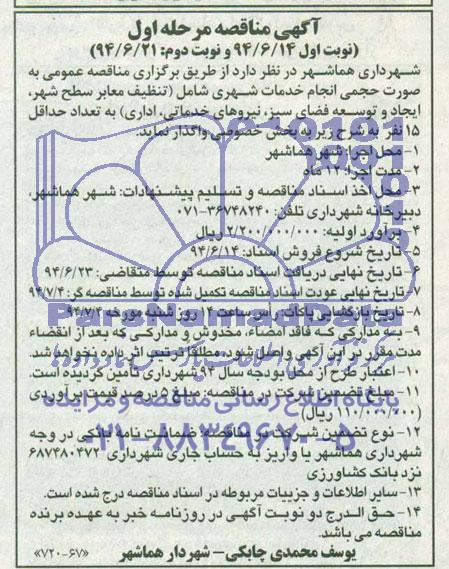 آگهی مناقصه مرحله اول
(نوبت اول ۹۴/۶/۱۴ و نوبت دوم: ۹۴/۶/۲۱)
شهرداری هماشهر در نظر دارد از طریق برگزاری مناقصه عمومی به
صورت حجمی انجام خدمات شهری شامل (تنظیف معابر سطح شهر،
ایجاد و توسعه فضای سبز، نیروهای خدماتی، اداری) به تعداد حداقل
۱۵ نفر به شرح زیر به بخش خصوصی واگذار نماید.
۱- محل اجرا: شهر هماشهر
۲- مدت اجرا: ۱۲ ماه
۳- محل اخذ اسناد مناقصه و تسلیم پیشنهادات: شهر هماشهر،
دبیرخانه شهرداری تلفن: ۳۶۷۴۸۲۴۰-۰۷۱
۴- برآورد اولیه: ۲/۲۰۰/۰۰۰/۰۰۰ ریال
۵- تاریخ شروع فروش اسناد: ۹۴/۶/۱۴
۶- تاریخ نهایی دریافت اسناد مناقصه توسط متقاضی: ۹۴/۶/۲۳
۷- تاریخ نهایی عودت اسناد مناقصه تکمیل شده توسط مناقصه گر: ۹۴/۷/۴
۸- تاریخ بازگشایی پاکات: راس ساعت ۱۴ روز شنبه مورخه ۹۴/۷/۴
۹- به مدارکی که فاقد امضاء، مخدوش و مدارکی که بعد از انقضاء
مدت مقرر در این آگهی واصل شود، مطلقا ترتیب اثر داده نخواهد شد.
۱۰- اعتبار طرح از محل بودجه سال ۹۴ شهرداری تامین گردیده است.
۱۱- مبلغ تضمین شرکت در مناقصه: مبلغ ۵ درصد قیمت برآوردی
(۱۱۰/۰۰۰/۰۰۰ ریال)
۱۲- نوع تضمین شرکت در مناقصه: ضمانت نامه بانکی در وجه
شهرداری هماشهر یا واریز به حساب جاری شهرداری ۶۸۷۴۸۰۴۷۲
نزد بانک کشاورزی
۱۳- سایر اطلاعات و جزییات مربوطه در اسناد مناقصه درج شده است.
۱۴- حق الدرج دو نوبت آگهی در روزنامه خبر به عهده برنده
مناقصه می باشد.
یوسف محمدی چابکی - شهردار هماشهر
«۷۲۰-۶۷»
ParsNamadData
پایگاه اطلاع رسانی مناقصه و مزایده
۰۲۱-۸۸۳۴۹۶۷۰-۵